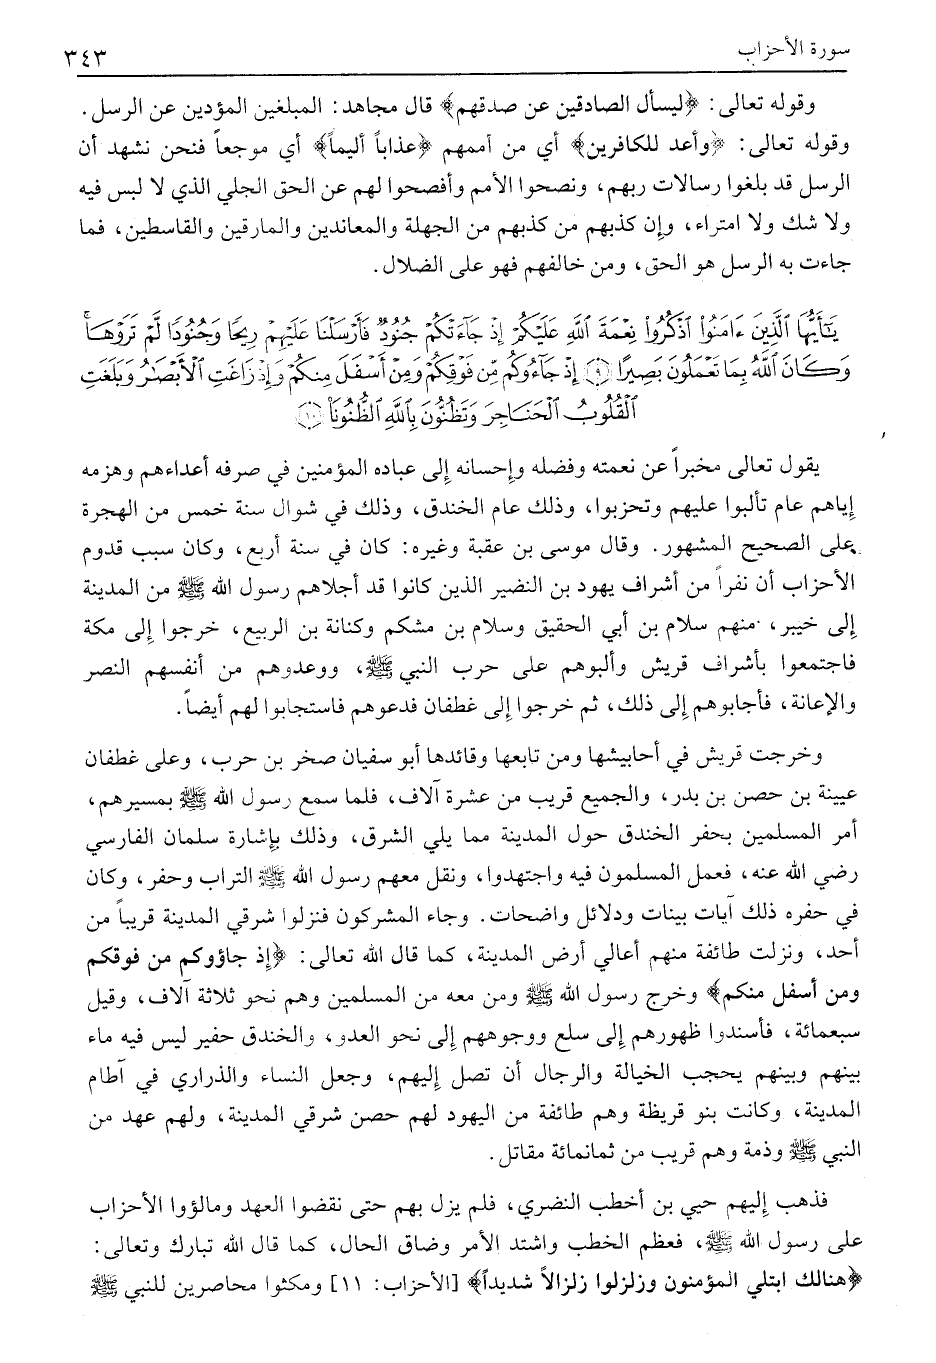 سورة الأحزاب
٣٤٣
وقوله تعالى: ﴿ليسأل الصادقين عن صدقهم﴾ قال مجاهد: المبلغين المؤدين عن الرسل.
وقوله تعالى: ﴿وأعد للكافرين﴾ أي من أممهم ﴿عذاباً أليماً﴾ أي موجعاً فنحن نشهد أن
الرسل قد بلغوا رسالات ربهم، ونصحوا الأمم وأفصحوا لهم عن الحق الجلي الذي لا لبس فيه
ولا شك ولا امتراء، وإن كذبهم من كذبهم من الجهلة والمعاندين والمارقين والقاسطين، فما
جاءت به الرسل هو الحق، ومن خالفهم فهو على الضلال.
يَٰٓأَيُّهَا ٱلَّذِينَ ءَامَنُوا۟ ٱذْكُرُوا۟ نِعْمَةَ ٱللَّهِ عَلَيْكُمْ إِذْ جَآءَتْكُمْ جُنُودٌ فَأَرْسَلْنَا عَلَيْهِمْ رِيحًا وَجُنُودًا لَّمْ تَرَوْهَا ۚ
وَكَانَ ٱللَّهُ بِمَا تَعْمَلُونَ بَصِيرًا ﴿٩﴾ إِذْ جَآءُوكُم مِّن فَوْقِكُمْ وَمِنْ أَسْفَلَ مِنكُمْ وَإِذْ زَاغَتِ ٱلْأَبْصَٰرُ وَبَلَغَتِ
ٱلْقُلُوبُ ٱلْحَنَاجِرَ وَتَظُنُّونَ بِٱللَّهِ ٱلظُّنُونَا۠ ﴿١٠﴾
يقول تعالى مخبراً عن نعمته وفضله وإحسانه إلى عباده المؤمنين في صرفه أعداءهم وهزمه
إياهم عام تألبوا عليهم وتحزبوا، وذلك عام الخندق، وذلك في شوال سنة خمس من الهجرة
على الصحيح المشهور. وقال موسى بن عقبة وغيره: كان في سنة أربع، وكان سبب قدوم
الأحزاب أن نفراً من أشراف يهود بن النضير الذين كانوا قد أجلاهم رسول الله ﷺ من المدينة
إلى خيبر، منهم سلام بن أبي الحقيق وسلام بن مشكم وكنانة بن الربيع، خرجوا إلى مكة
فاجتمعوا بأشراف قريش وألبوهم على حرب النبي ﷺ، ووعدوهم من أنفسهم النصر
والإعانة، فأجابوهم إلى ذلك، ثم خرجوا إلى غطفان فدعوهم فاستجابوا لهم أيضاً.
وخرجت قريش في أحابيشها ومن تابعها وقائدها أبو سفيان صخر بن حرب، وعلى غطفان
عيينة بن حصن بن بدر، والجميع قريب من عشرة آلاف، فلما سمع رسول الله ﷺ بمسيرهم،
أمر المسلمين بحفر الخندق حول المدينة مما يلي الشرق، وذلك بإشارة سلمان الفارسي
رضي الله عنه، فعمل المسلمون فيه واجتهدوا، ونقل معهم رسول الله ﷺ التراب وحفر، وكان
في حفره ذلك آيات بينات ودلائل واضحات. وجاء المشركون فنزلوا شرقي المدينة قريباً من
أحد، ونزلت طائفة منهم أعالي أرض المدينة، كما قال الله تعالى: ﴿إذ جاؤوكم من فوقكم
ومن أسفل منكم﴾ وخرج رسول الله ﷺ ومن معه من المسلمين وهم نحو ثلاثة آلاف، وقيل
سبعمائة، فأسندوا ظهورهم إلى سلع ووجوههم إلى نحو العدو، والخندق حفير ليس فيه ماء
بينهم وبينهم يحجب الخيالة والرجال أن تصل إليهم، وجعل النساء والذراري في آطام
المدينة، وكانت بنو قريظة وهم طائفة من اليهود لهم حصن شرقي المدينة، ولهم عهد من
النبي ﷺ وذمة وهم قريب من ثمانمائة مقاتل.
فذهب إليهم حيي بن أخطب النضري، فلم يزل بهم حتى نقضوا العهد ومالؤوا الأحزاب
على رسول الله ﷺ، فعظم الخطب واشتد الأمر وضاق الحال، كما قال الله تبارك وتعالى:
﴿هنالك ابتلي المؤمنون وزلزلوا زلزالاً شديداً﴾ [الأحزاب: ١١] ومكثوا محاصرين للنبي ﷺ